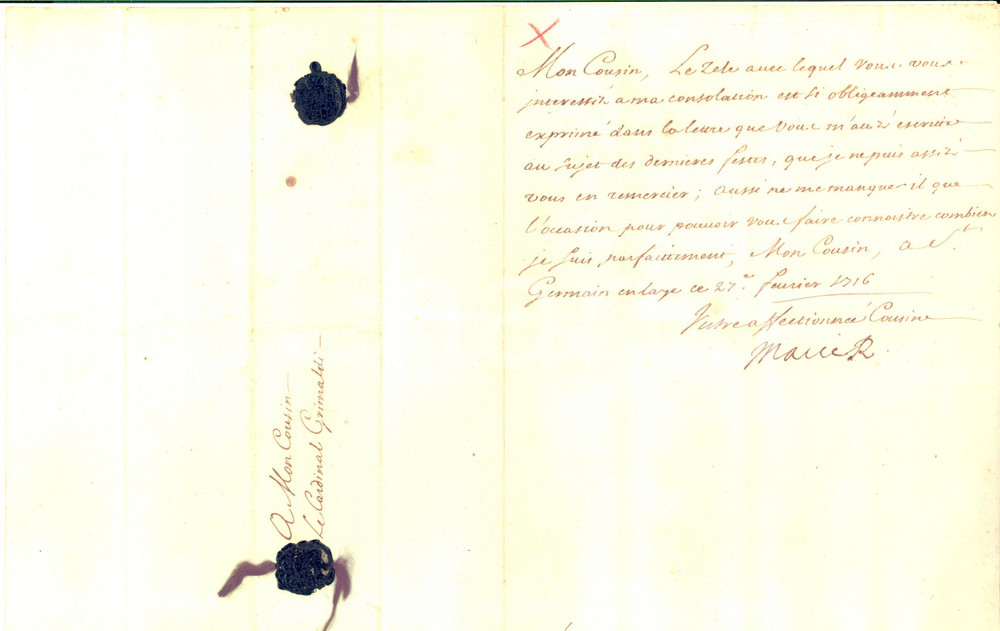 A Mon Cousin
Le Cardinal Grimaldi
Mon Cousin, Le Zele avec lequel vous vous
interessés a ma consolation est si obligeamment
exprimé dans la lettre que vous m'avés escritte
au sujet des dernieres festes, que je ne puis assés
vous en remercier; aussi ne me manque-il que
l'occasion pour pouvoir vous faire connoistre combien
je suis parfaittement, Mon Cousin, a St.
Germain en laye ce 27.e fevrier 1716
Vostre affectionneé Cousine
Marie R.